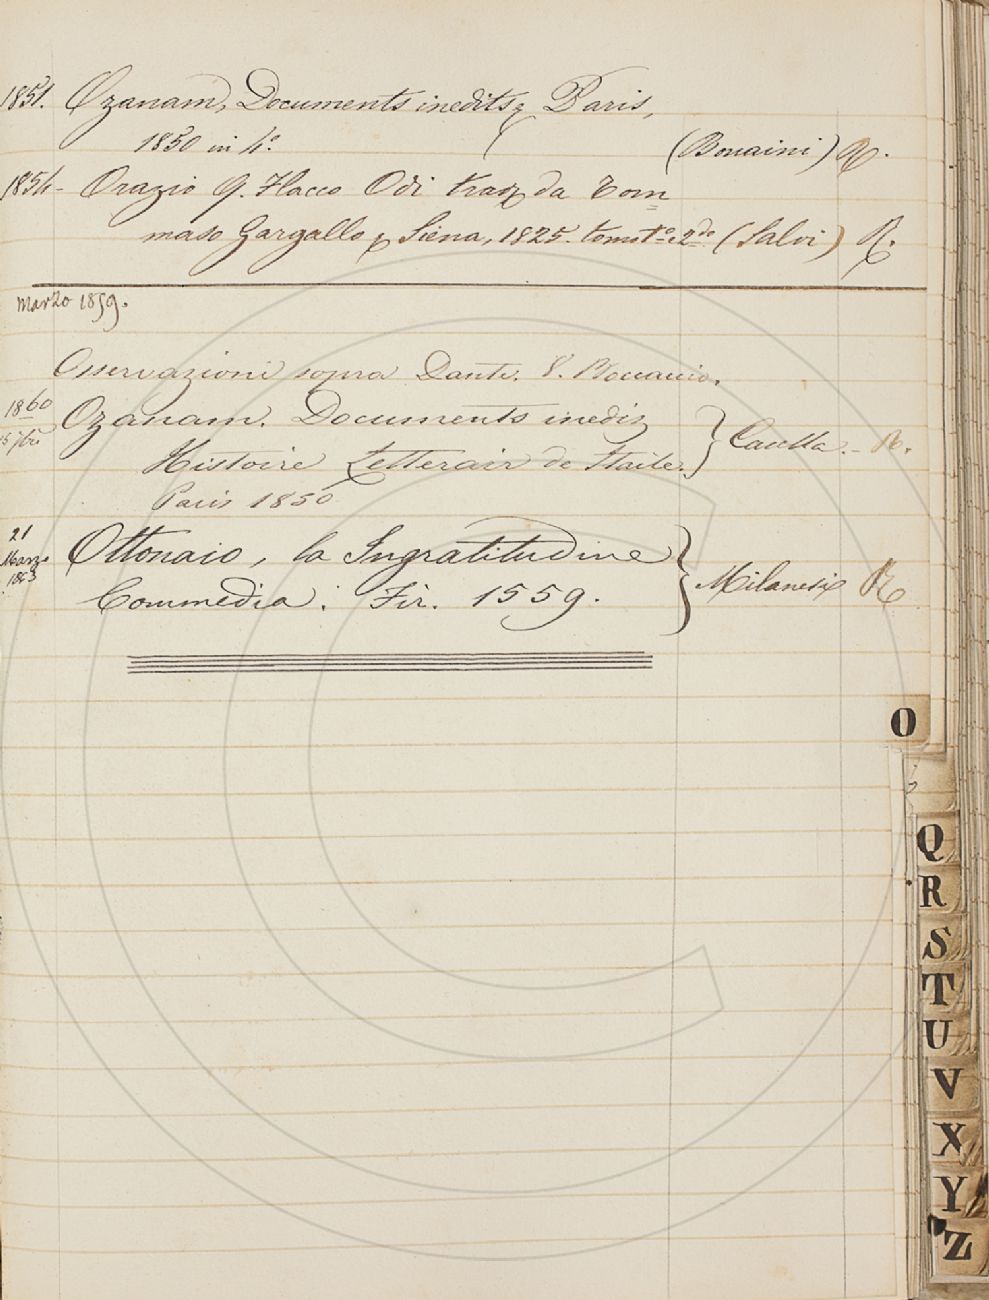 1851. Ozanam, Documents inedits, Paris,
1850 in 4°. (Bonaini) R.
1854 - Orazio Q. Flacco Odi trad da Tom
maso Gargallo, Siena, 1825. tomo 1° e 2do (Salvi) R.
Marzo 1859.
Osservazioni sopra Dante. V. Boccaccio.
1860 Ozanam. Documents inedi
15 7bre Histoire Letterair de Itailes } Casella. - R.
Paris 1850
21 Marzo 1863 Ottonaio, la Ingratitudine
Commedia: Fir. 1559. } Milanesi R
O
Q
R
S
T
U
V
X
Y
Z